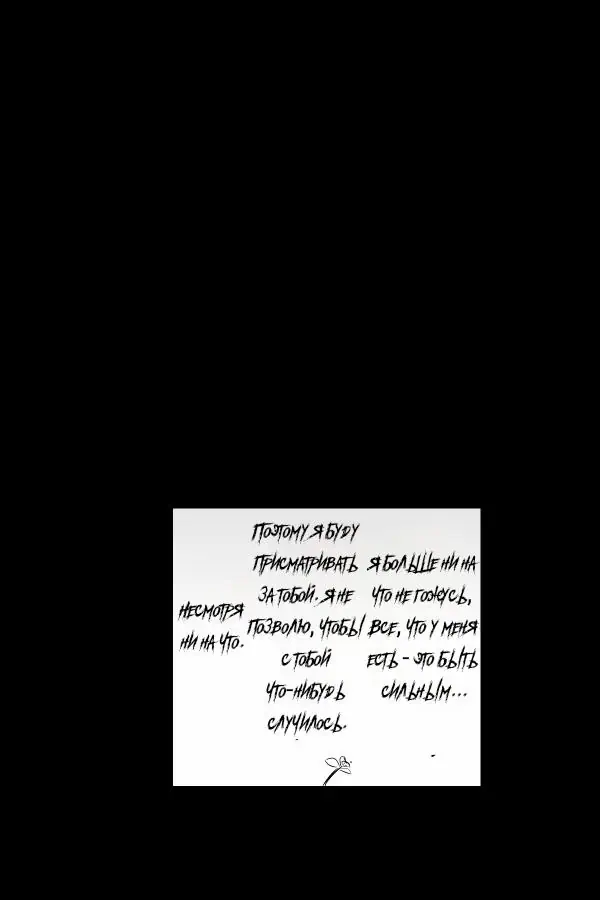 Я БОЛЬШЕ НИ НА
ЧТО НЕ ГОЖУСЬ,
ВСЕ, ЧТО У МЕНЯ
ЕСТЬ - ЭТО БЫТЬ
СИЛЬНЫМ...
ПОЭТОМУ Я БУДУ
ПРИСМАТРИВАТЬ
ЗА ТОБОЙ. Я НЕ
ПОЗВОЛЮ, ЧТОБЫ
С ТОБОЙ
ЧТО-НИБУДЬ
СЛУЧИЛОСЬ.
НЕСМОТРЯ
НИ НА ЧТО.